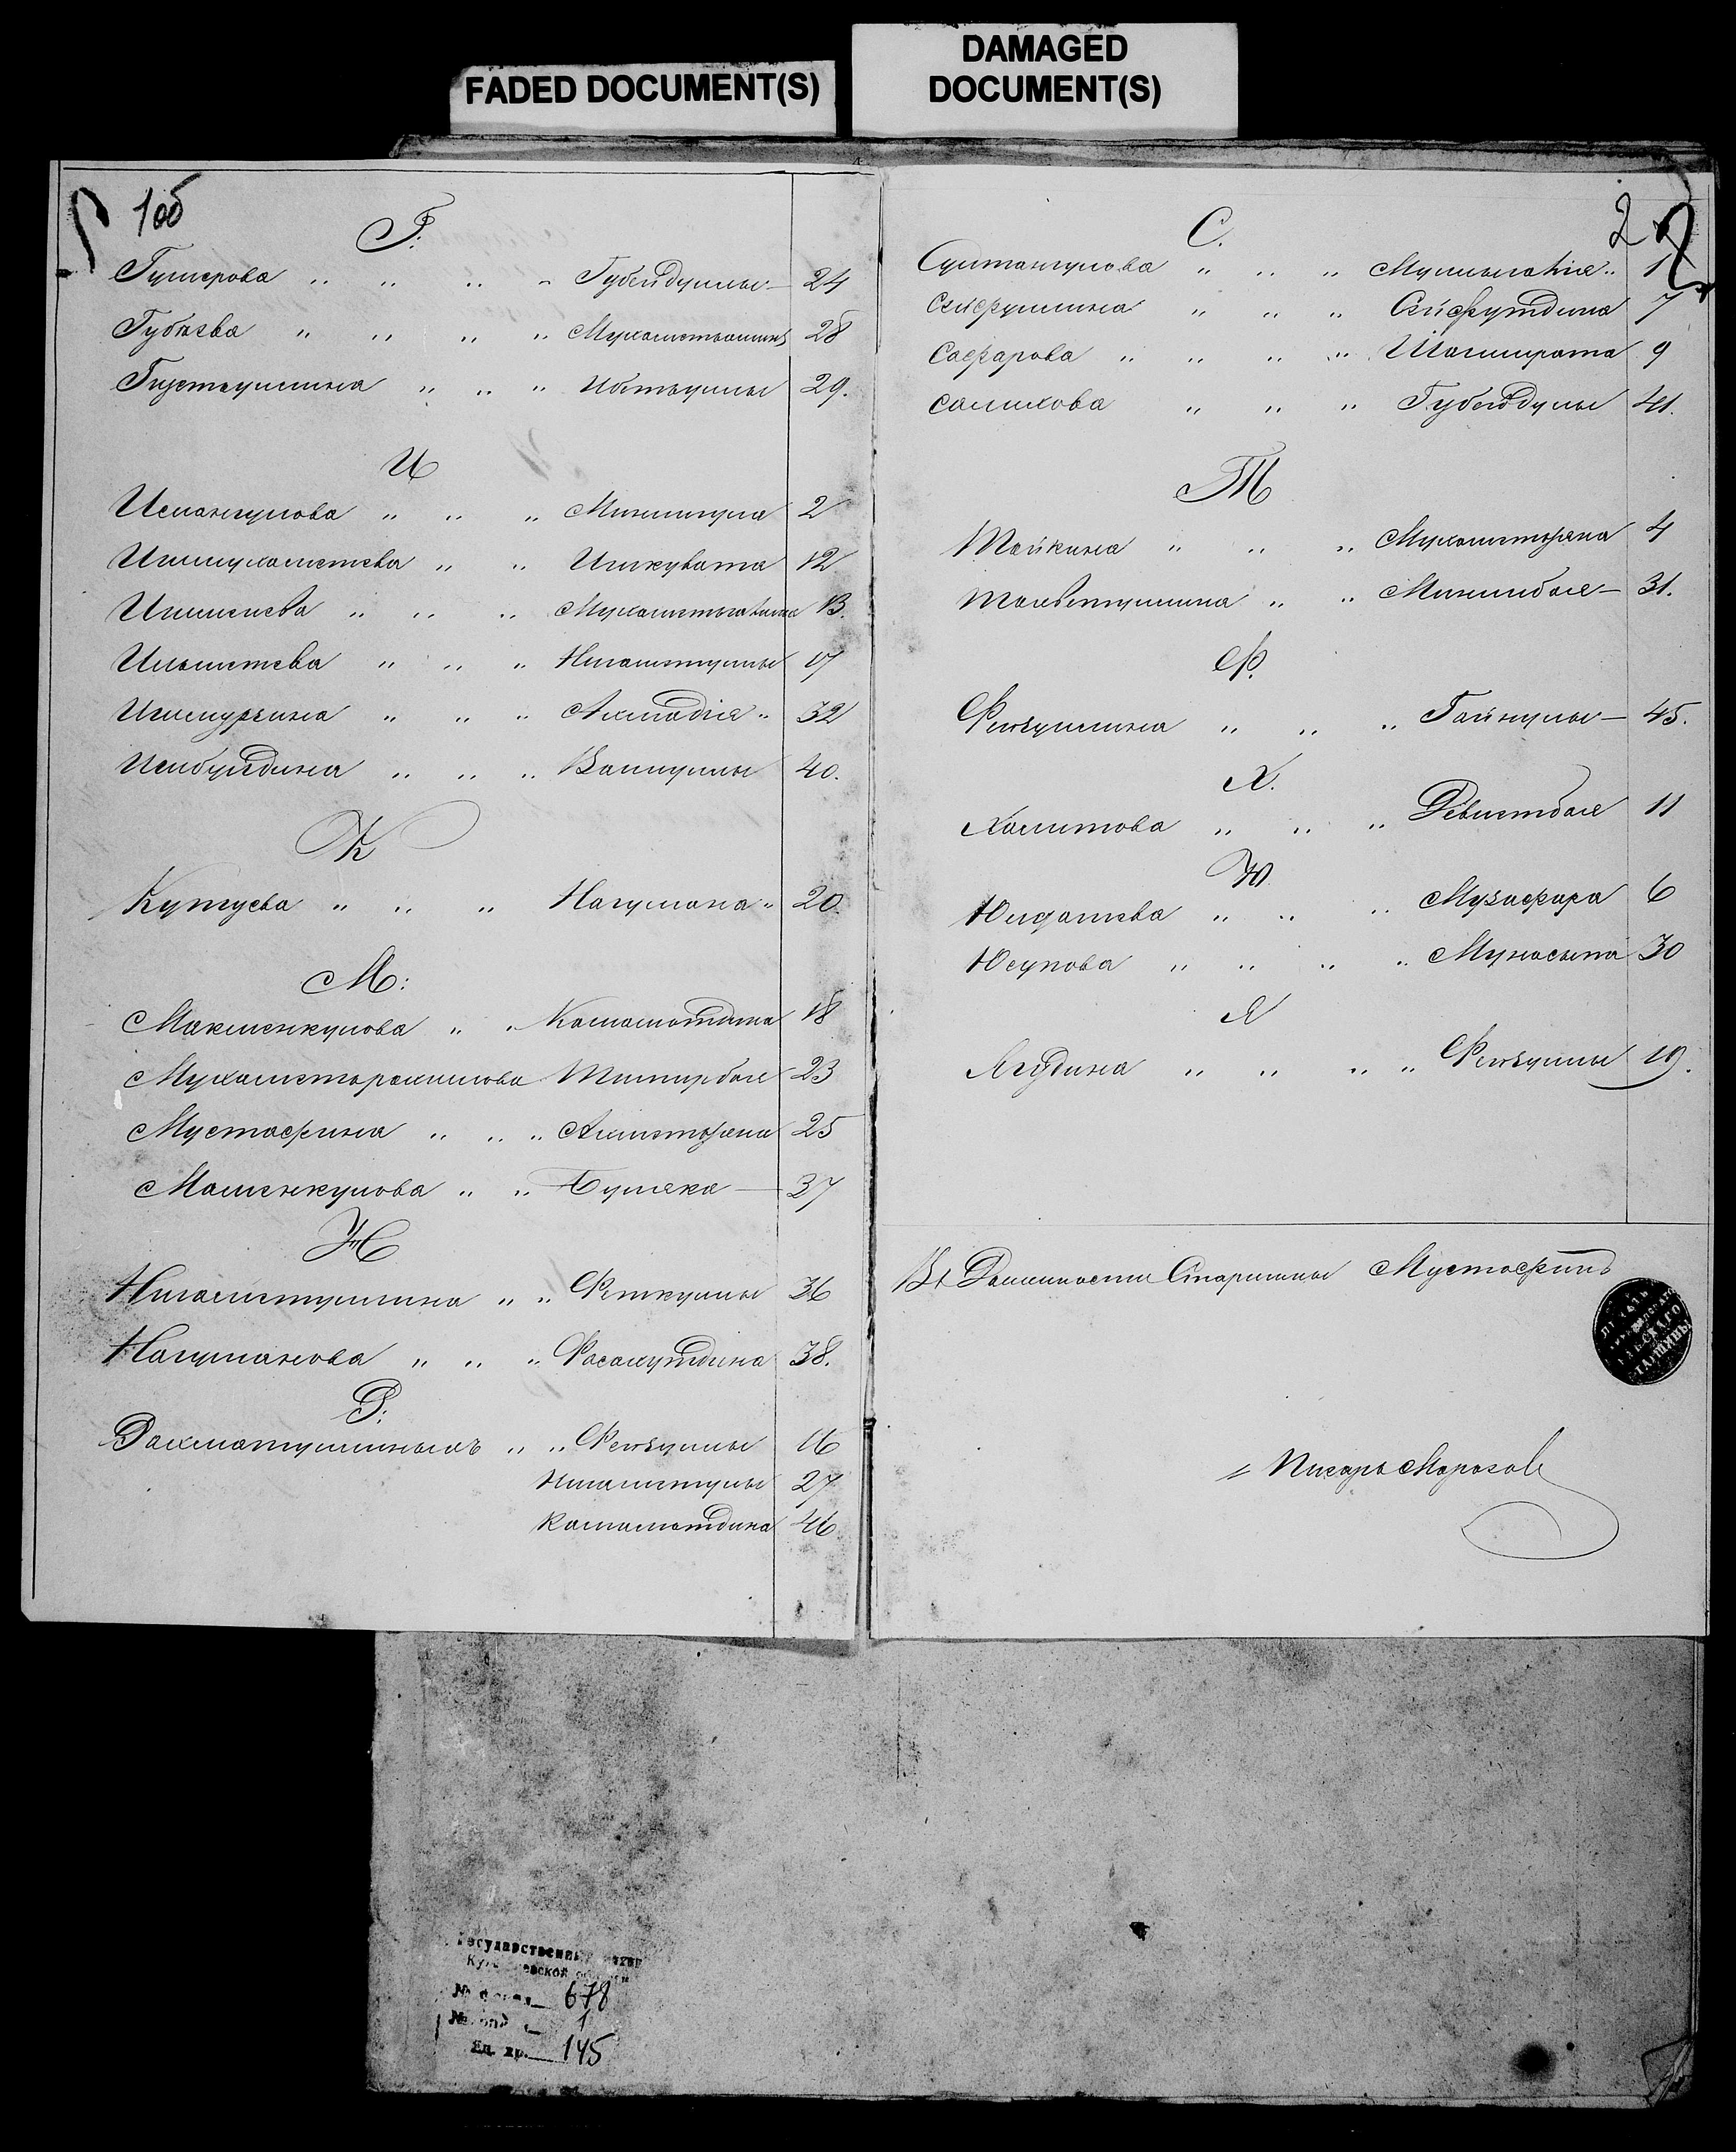 FADED DOCUMENT(S)
DAMAGED
DOCUMENT(S)
1об
Г.
Гумерова " " " " Губейдуллы — 24
Губаева " " " " Мухаметьамина 28
Густаулина " " " Ибатуллы 29.
И
Исмангулова " " " Минлигула 2
Ишмухаметева " " Ишкувата 12
Ишмеева " " " Мухаметьгалима 13.
Ильметева " " " Нигаметуллы 17
" " " Ахмадія " 32
Исибулдина " " " Валиуллы 40.
К
Кутуева " " " Нагумана " 20.
М:
Макшенкулова " " Камалютдина 18
Мухаметьрахимова Тимирбая 23
Мустафина " " " Ахметьжана 25
Мамшенкулова " " Буляка — 37
Н
Нигаметуллина " " Фаткуллы 36
Нагуманова " " " Фасахутдина 38.
Р:
Рахматуллиныхъ " " Фейзуллы 16
Нигаметуллы 27
Камалютдина 46
2
С.
Султангулова " " " Муллыгалія " 1
Сейфуллина " " " Сейфутдина 7
Сафарова " " " " Шагимрата 9
Салихова " " " Губейдуллы 41.
Т
Тайкина " " " Мухаметьжана 4
Таиветуллина " " Минлибая — 31.
Ф.
Фейзуллина " " " Гайнуллы — 45.
Х.
Халитова " " " Девлетбая 11
Ю
Юлдашева " " " Музафара 6
Юсупова " " " " Мунасыпа 30
Я
Ягудина " " " " Фейзуллы 19.
Въ Должности Старшины Мустафинъ
Писарь Морозов
Государственный архив
Куйбышевской области
№ фонда 678
№ описи 1
Ед. хр. 145